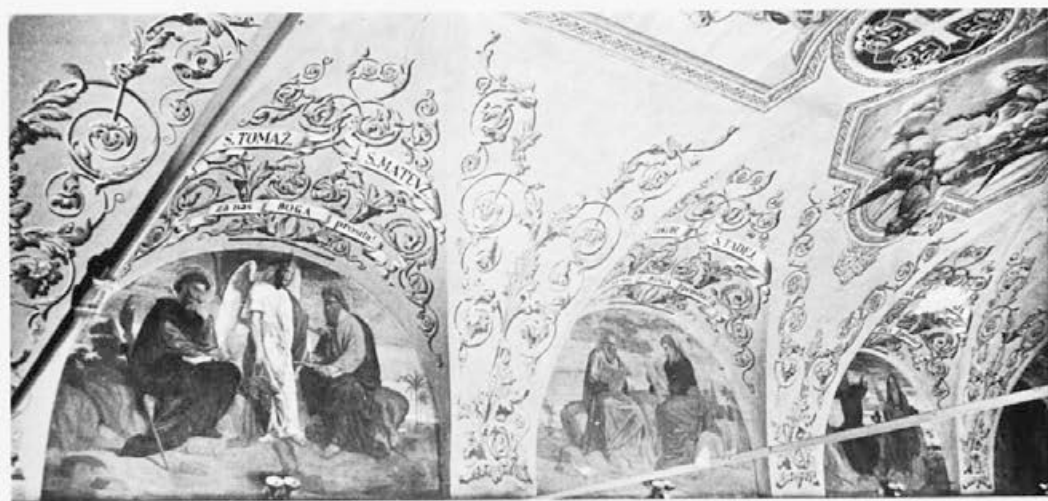 S. TOMAŽ
S. MATEVŽ
za nas BOGA prosita!
S. TADEJ